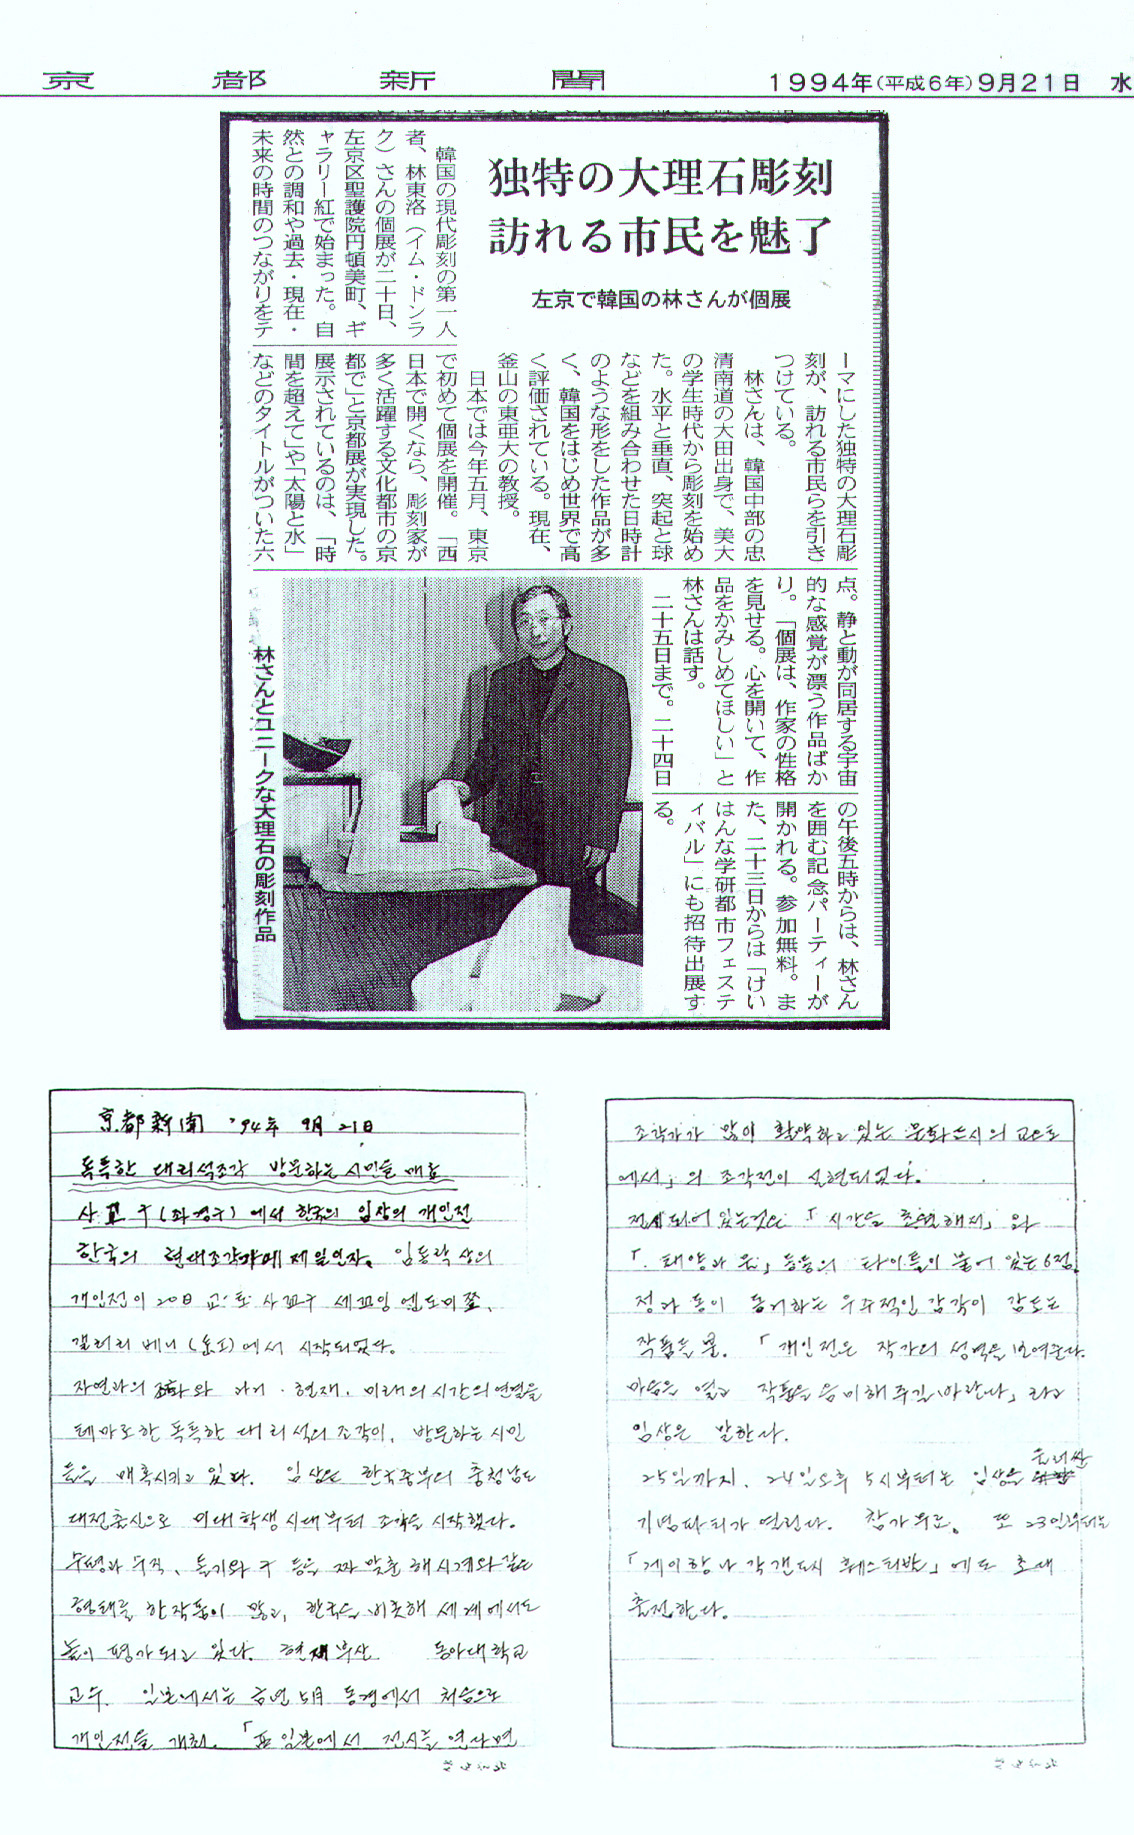 京都新聞
1994年(平成6年)9月21日 水
独特の大理石彫刻
訪れる市民を魅了
左京で韓国の林さんが個展
韓国の現代彫刻の第一人
者、林東洛(イム・ドンラ
ク)さんの個展が二十日、
左京区聖護院円頓美町、ギ
ャラリー紅で始まった。自
然との調和や過去・現在・
未来の時間のつながりをテ
ーマにした独特の大理石彫
刻が、訪れる市民らを引き
つけている。
林さんは、韓国中部の忠
清南道の大田出身で、美大
の学生時代から彫刻を始め
た。水平と垂直、突起と球
などを組み合わせた日時計
のような形をした作品が多
く、韓国をはじめ世界で高
く評価されている。現在、
釜山の東亜大の教授。
日本では今年五月、東京
で初めて個展を開催。「西
日本で開くなら、彫刻家が
多く活躍する文化都市の京
都で」と京都展が実現した。
展示されているのは、「時
間を超えて」や「太陽と水」
などのタイトルがついた六
点。静と動が同居する宇宙
的な感覚が漂う作品ばか
り。「個展は、作家の性格
を見せる。心を開いて、作
品をかみしめてほしい」と
林さんは話す。
二十五日まで。二十四日
の午後五時からは、林さん
を囲む記念パーティーが
開かれる。参加無料。ま
た、二十三日からは「けい
はんな学研都市フェステ
ィバル」にも招待出展す
る。
林さんとユニークな大理石の彫刻作品
京都新聞 '94年 9月 21日
독특한 대리석조각 방문하는 시민을 매료
사교구(좌경구)에서 한국의 임상의 개인전
한국의 현대조각가에 제일인자. 임동락 상의
개인전이 20日 교토 사교구 세고잉 엔도미쪼,
갤러리 베니(紅)에서 시작되었다.
자연과의 조화와 과거·현재·미래의 시간의 연결을
테마로한 독특한 대리석의 조각이, 방문하는 시민
들을 매혹시키고 있다. 임상은 한국중부의 충청남도
대전출신으로 미대 학생시대부터 조각을 시작했다.
수평과 수직, 돌기와 구 등을 짜 맞춘 해시계와 같은
형태를 한 작품이 많고, 한국을 비롯해 세계에서도
높이 평가되고 있다. 현재 부산 동아대학교
교수. 일본에서는 금년 5月 동경에서 처음으로
개인전을 개최. 「西일본에서 전시를 연다면
조각가가 많이 활약하고 있는 문화도시의 교토로
에서」의 조각전이 실현되었다.
전시되어 있는것은 「시간을 초월해서」와
「태양과 물」등등의 타이틀이 붙어 있는 6점.
정과 동이 동거하는 우주적인 감각이 감도는
작품들 뿐. 「개인전은 작가의 성격을 보여준다.
마음을 열고 작품을 음미해 주길 바란다」라고
임상은 말한다.
25일까지. 24일 오후 5시부터는 임상을 둘러싼
기념파티가 열린다. 참가무료. 또 23일부터는
「게이항나 각갠도시 훼스티발」에도 초대
출전한다.